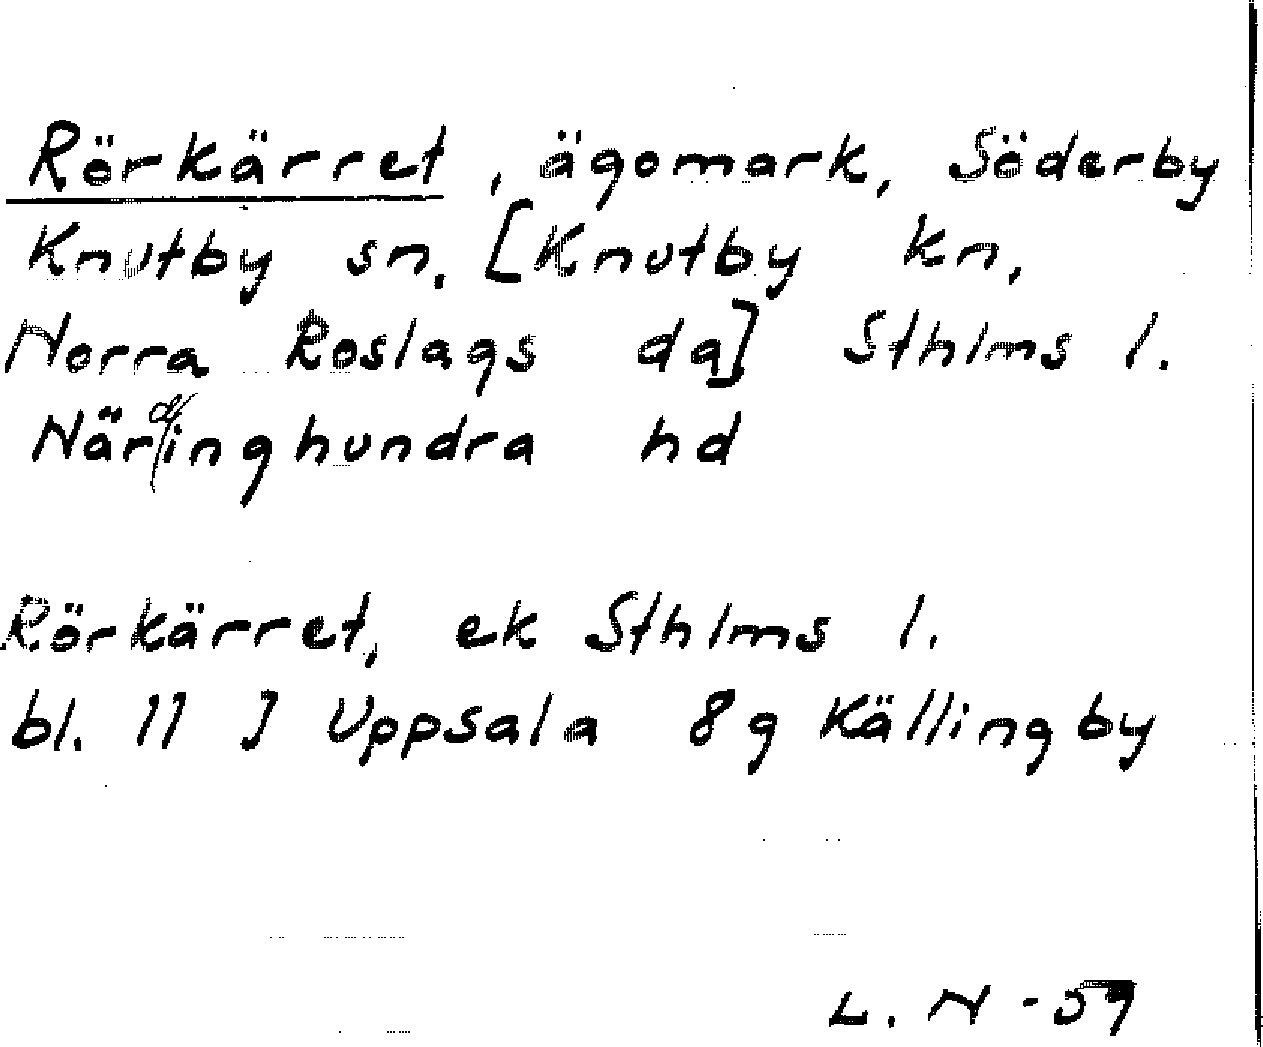 Rörkärret, ägomark, Söderby
Knutby sn. [Knutby kn,
Norra Roslags da] Sthlms l.
Närdinghundra hd
Rörkärret, ek Sthlms l.
bl. 11 J Uppsala 8g Källingby
L. N -59